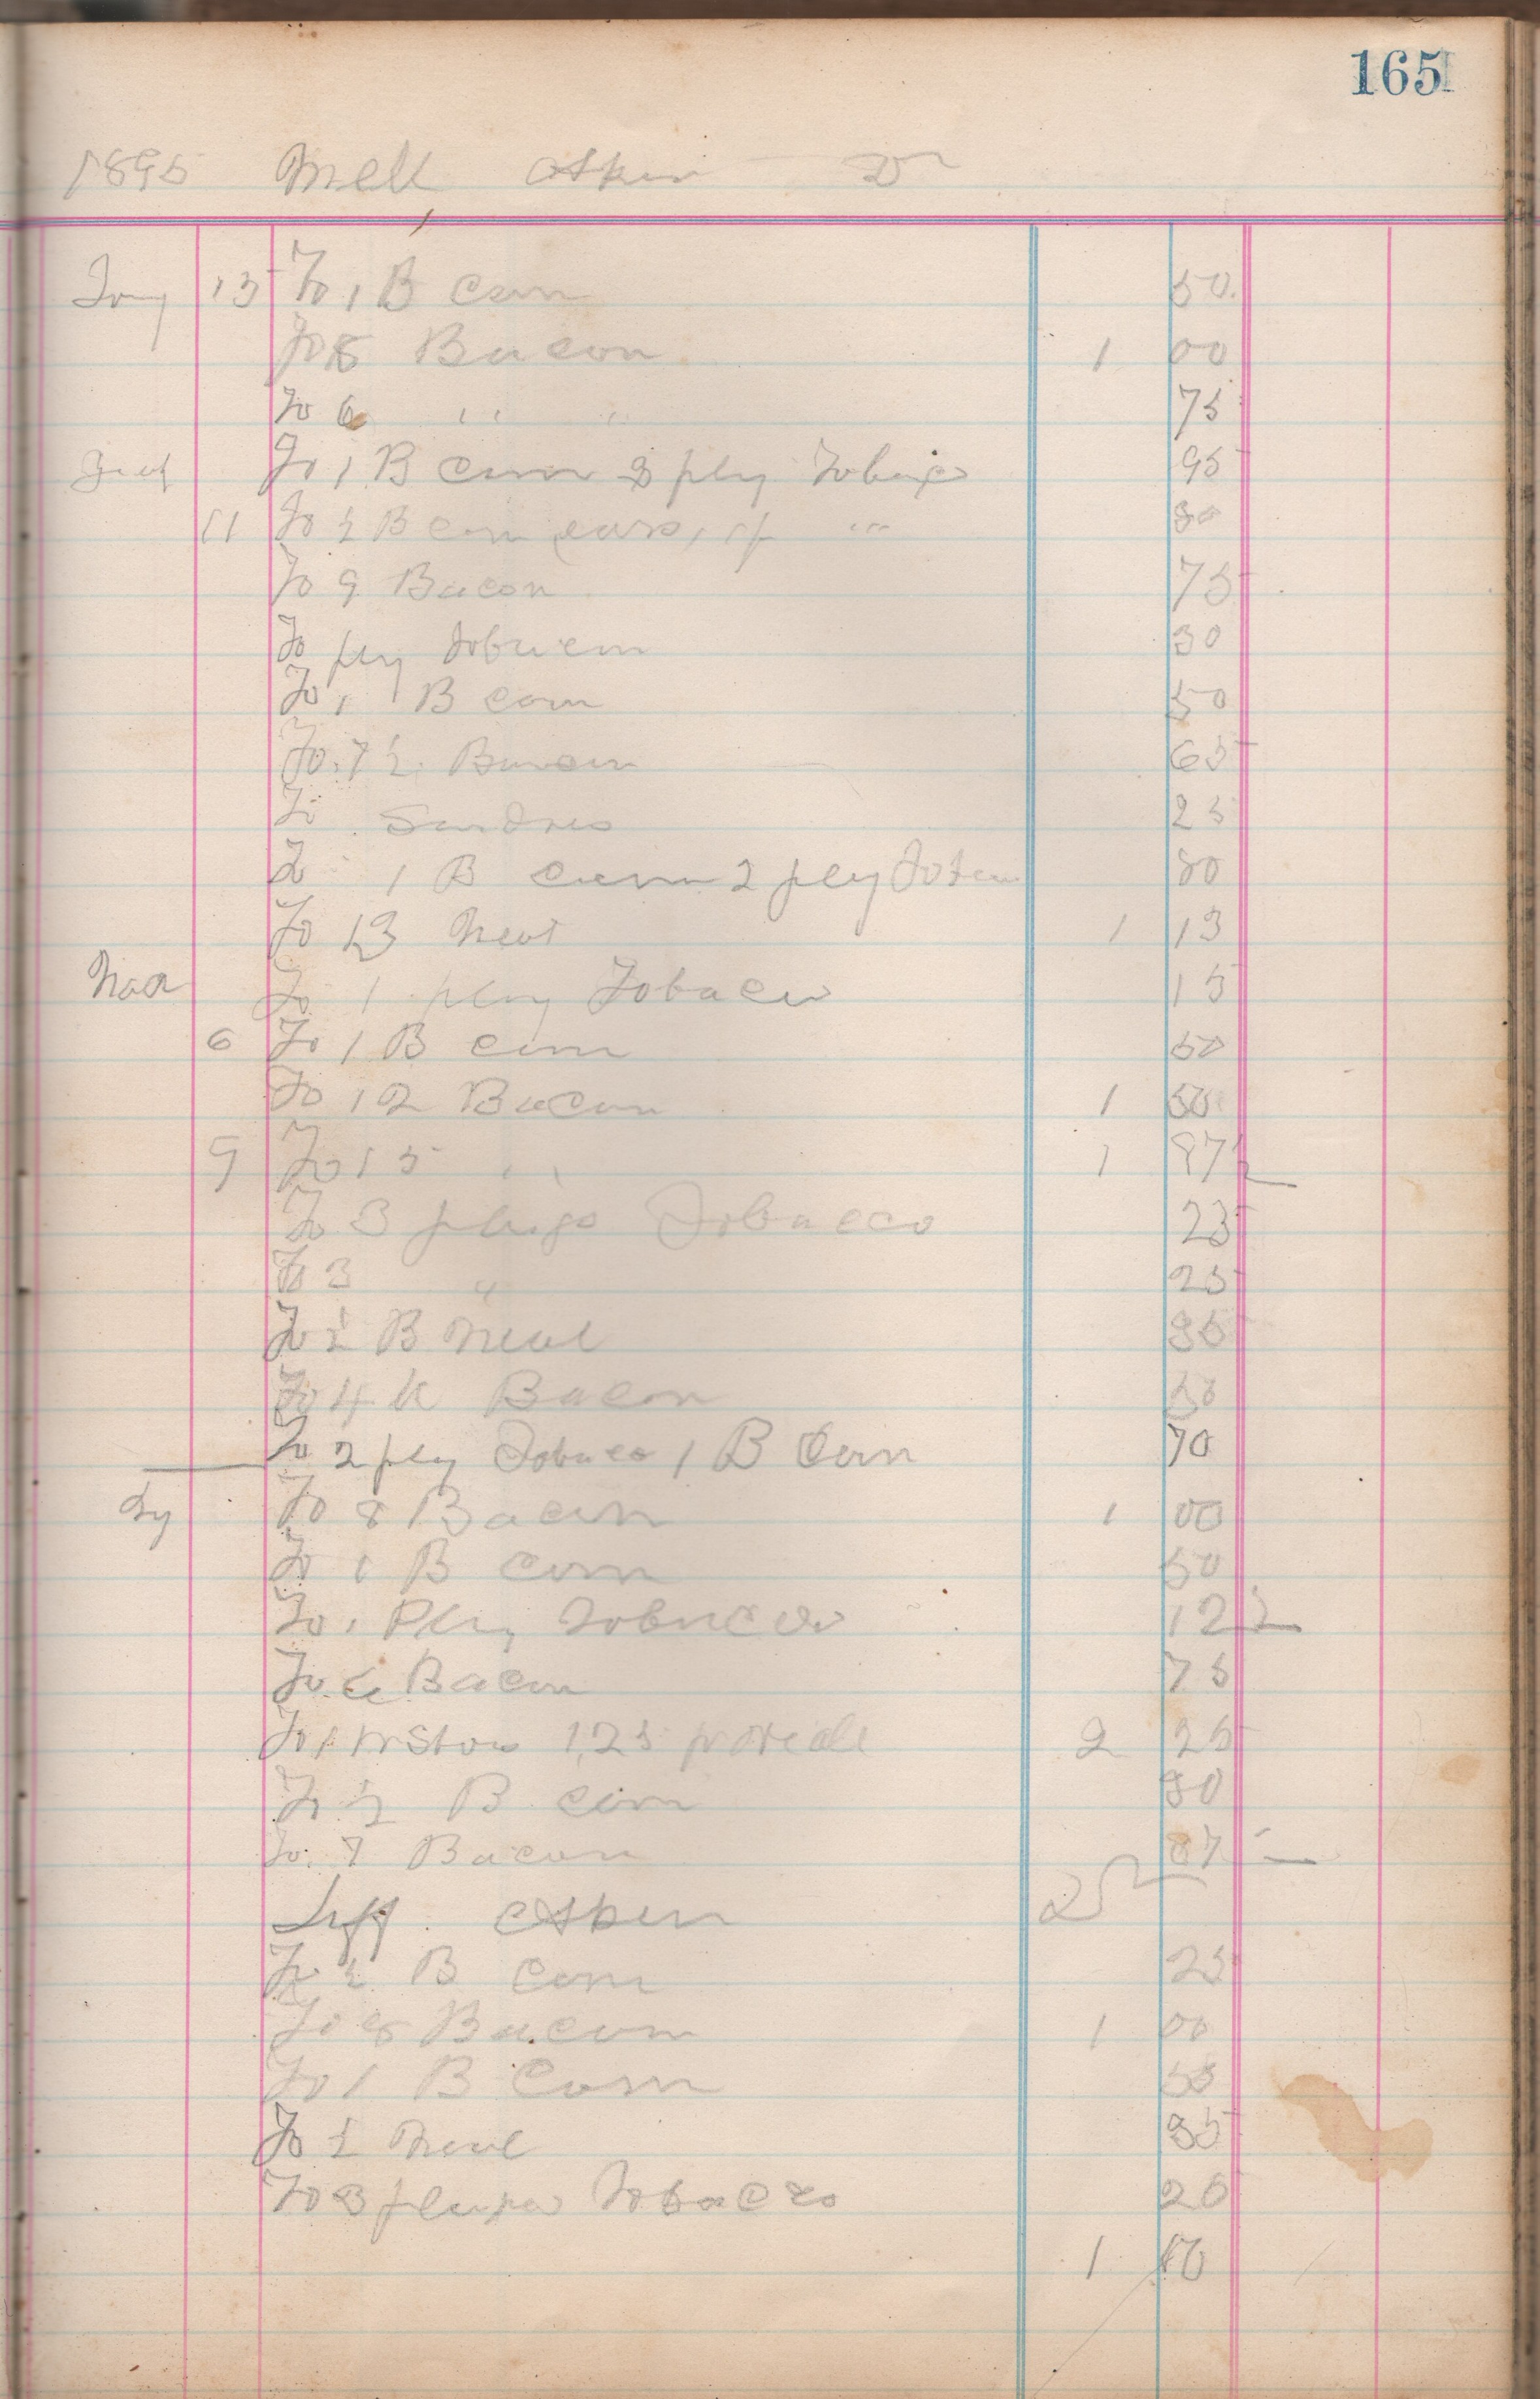 165
1895 Mell Askew Dr
13 To 1 B Corn 50
To 8 Bacon 1 00
To 6 " " 75
To 1 B Corn 3 plug Tobaco 95
11 To ½ B Corn 30
To 9 Bacon 75
To plug Tobacco 30
To 1 B Corn 50
To 7½ Bacon 65
To Sundries 25
To 1 B Corn 2 plug 80
To 13 Meat 1 13
Mar To 1 plug Tobacco 15
6 To 1 B Corn 50
To 12 Bacon 1 50
9 To 15 " 1 87½
To 3 plugs Tobacco 25
To 3 " 25
To ½ B Meal 35
To 4 lb Bacon 50
To 2 plug Tobaco 1 B Corn 70
To 8 Bacon 1 00
To 1 B Corn 50
To 1 Plug Tobacco 12½
To 6 Bacon 75
To 1 1,25 2 25
To ½ B Corn 30
To 7 Bacon 87
Jeff Askew Dr
To ½ B Corn 25
To 8 Bacon 1 00
To 1 B Corn 50
To ½ Meal 35
To 3 Tobacco 25
1 10